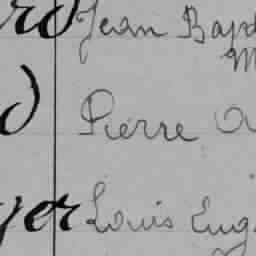 rd Jean Bapt
M
Pierre A
yer Louis Eug